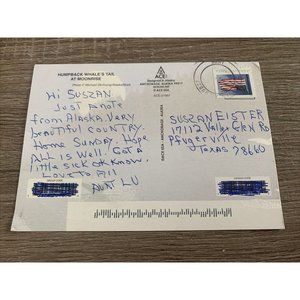 HUMPBACK WHALE'S TAIL
AT MOONRISE
ACE
Hi SUSZAN
Just a note
from Alaska. Vary
beautiful COUNTRY.
Home SUNDAY. Hope
All is Well. Got a
little sick OK know.
Love to All
AUNT LU
SUSZAN EISTER
17112 Valey GLEN Rd
Pfugerville
Texas 78660